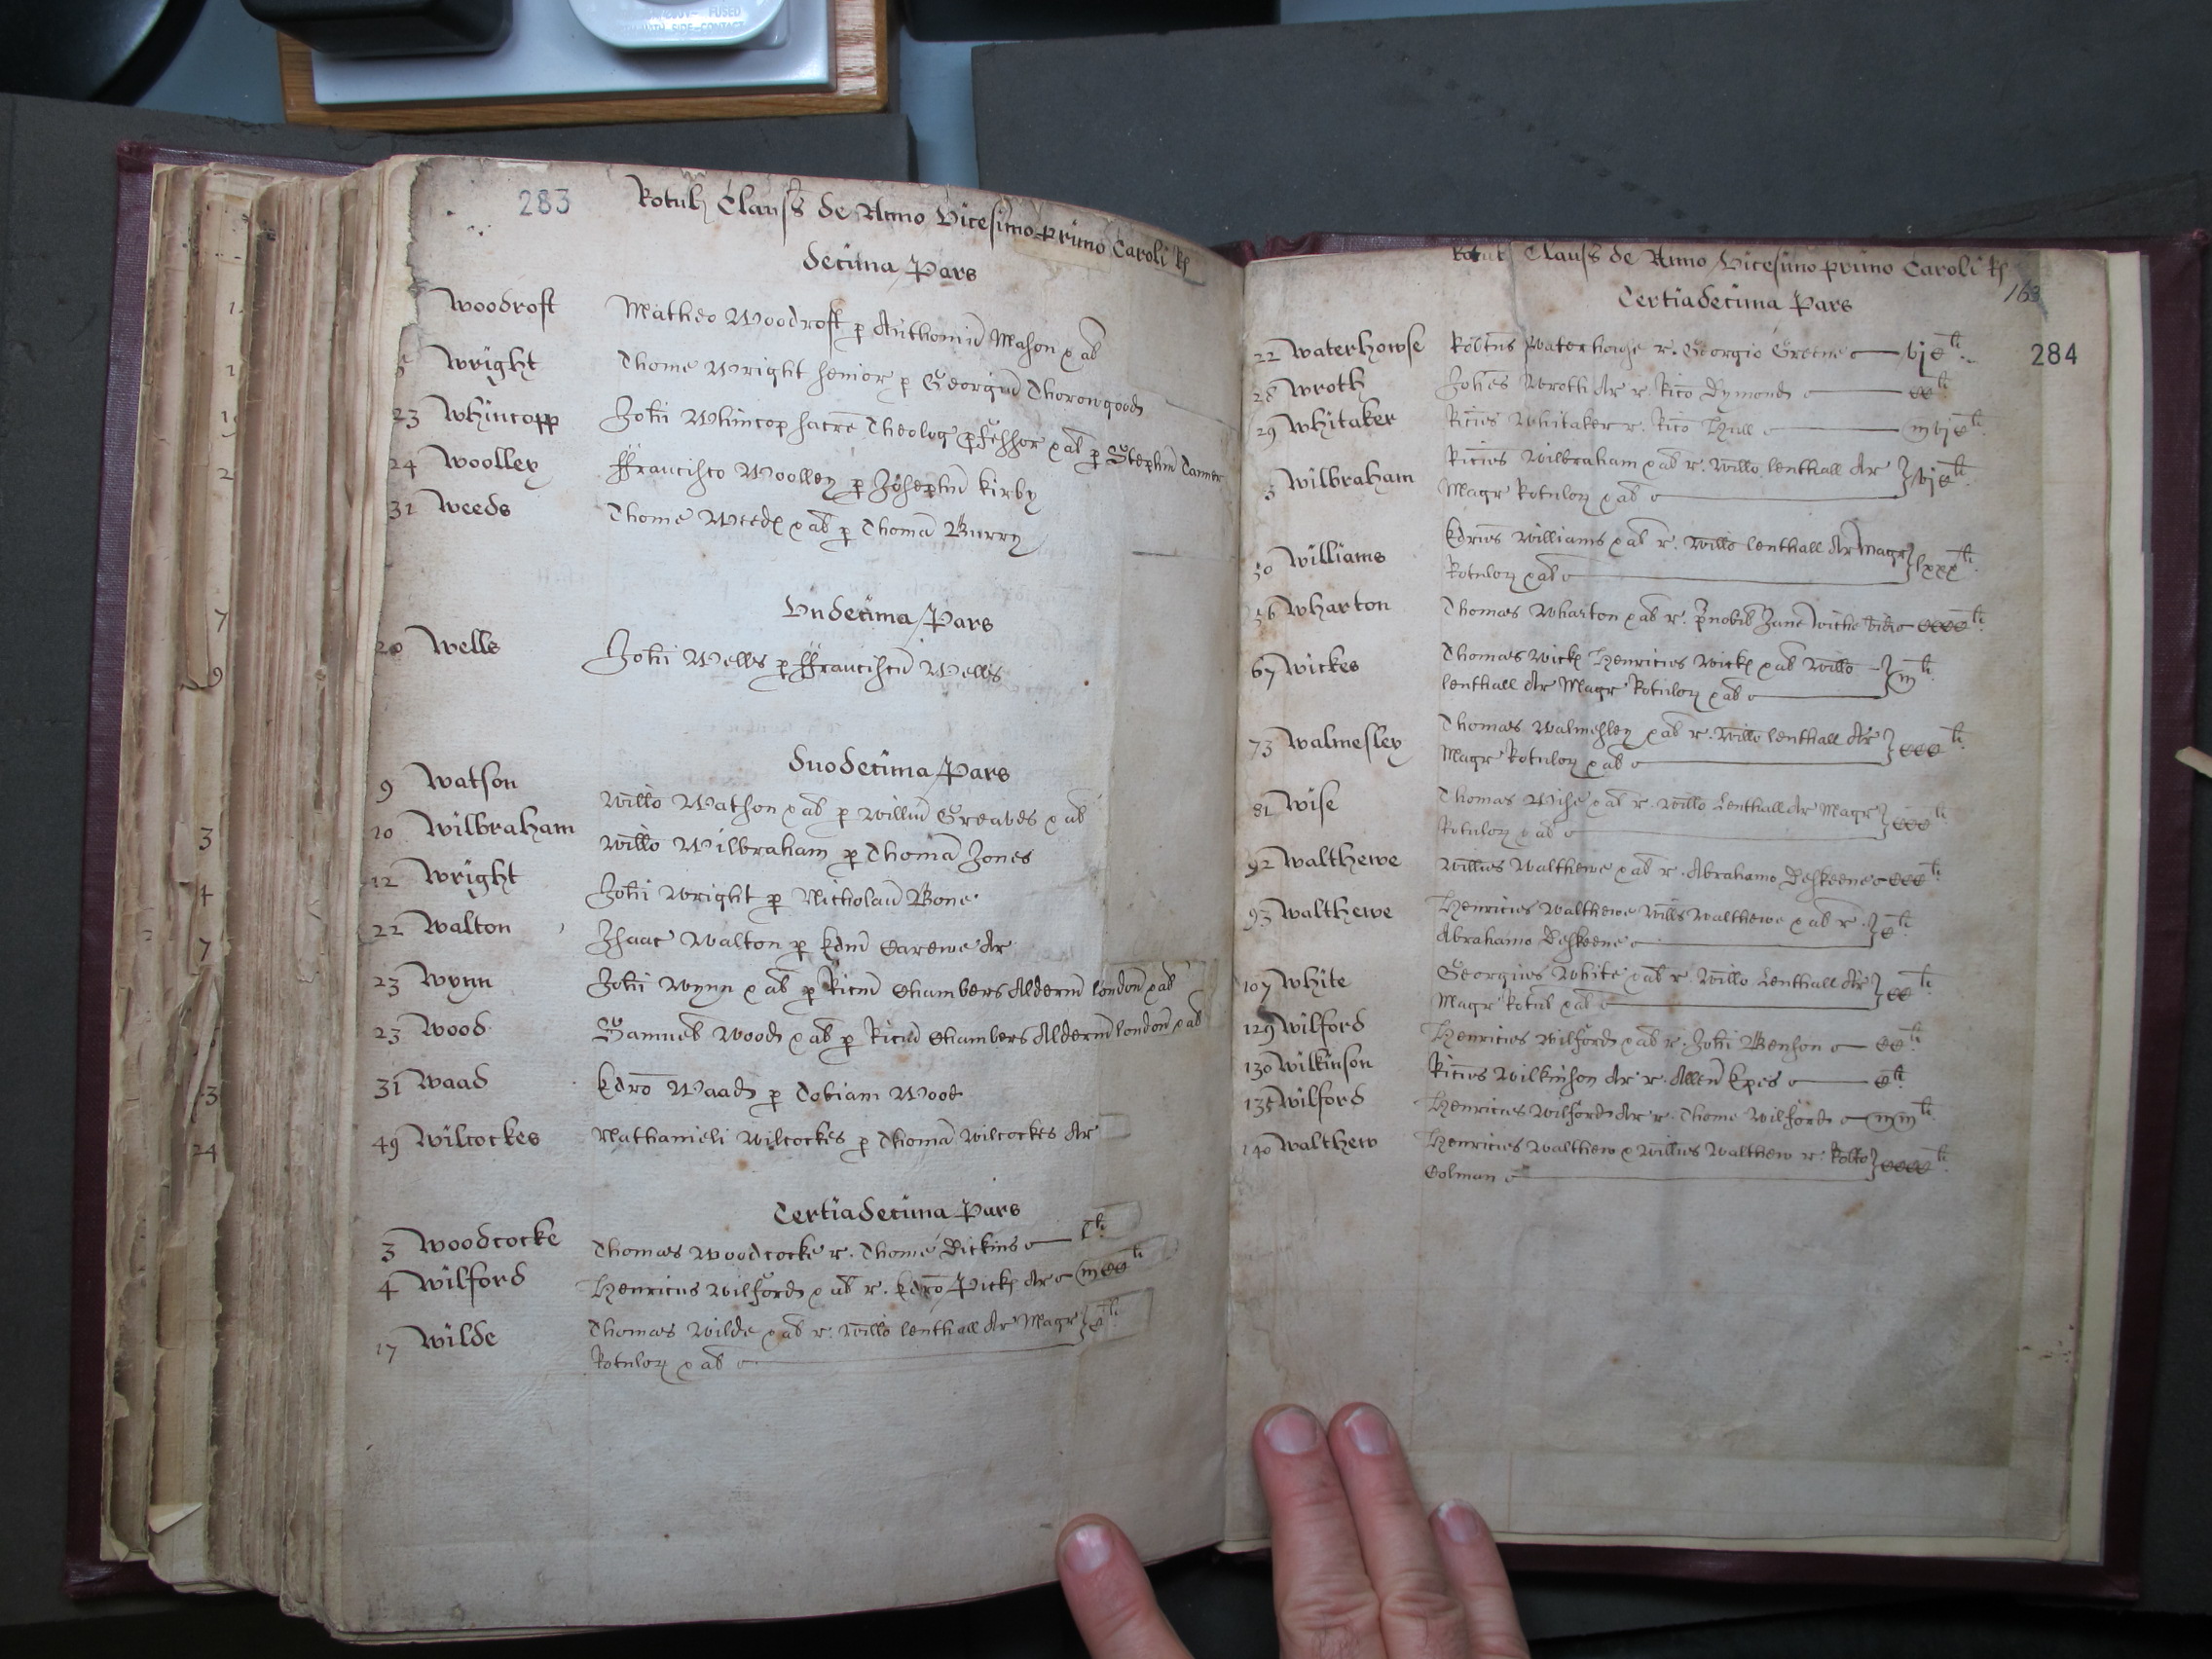 FUSED
WITH SIDE-CONTACT
283
Rotuli Clauss de Anno Vicesimo primo Caroli Rs
decima Pars
Woodroft Matheo Woodroft p Anthoniu Mason x ab
Wright Thome Wright senior p Georgiu Thorowgood
23 Whincopp Johi Whincop sacre Theolog pfessor x ab p Stephm Tanner
24 Woolley ffrancisco Woolley p Josephm Kirby
31 Weeds Thome Weeds x ab p Thoma Burry
Undecima Pars
20 Wells Johi Wells p ffranciscu Wells
duodecima Pars
9 Watson Willo Watson x ab p Willm Greaves x ab
10 Wilbraham Willo Wilbraham p Thoma Jones
12 Wright Johi Wright p Nicholau Bone
22 Walton Isaac Walton p Edm Carewe Ar
23 Wynn Johi Wynn x ab p Ricm Chambers Alderm london x ab
23 Wood Samueli Wood x ab p Ricm Chambers Alderm london x ab
31 Waad Edro Waad p Tobiam Wood
49 Wilcockes Nathanieli Wilcockes p Thoma Wilcockes Ar
Terciadecima Pars
3 Woodcocke Thomas Woodcocke r. Thome Dickins C li
4 Wilford Henricus Wilford x ab r. Edro Picks Ar mCC li
17 Wilde Thomas Wilde x ab r. Willo lenthall Ar Magr C li
Rotulor x ab
Rotul Clauss de Anno Vicesimo primo Caroli Rs
163
Terciadecima Pars
284
22 Waterhowse Robtus Waterhouse r. Georgio Greene vjC li
28 Wroth Johes Wroth Ar r. Rico Dymond CC li
29 Whitaker Ricus Whitaker r. Rico Hull mvjC li
Wilbraham Ricus Wilbraham x ab r. Willo lenthall Ar vjC li
Magr Rotulor x ab
50 Williams Edrus Williams x ab r. Willo lenthall Ar Magr lxxx li
Rotulor x ab
56 Wharton Thomas Wharton x ab r. p nobil Jane CCCC li
67 Wickes Thomas Wicks Henricus Wicks x ab Willo m li
lenthall Ar Magr Rotulor x ab
73 Walmesley Thomas Walmesley x ab r. Willo lenthall Ar CCC li
Magr Rotulor x ab
81 Wise Thomas Wise x ab r. Willo Lenthall Ar Magr CCC li
Rotulor x ab
92 Walthewe Willus Walthewe x ab r. Abrahamo Deskeene CCC li
93 Walthewe Henricus Walthewe Wills Walthewe x ab r C li
Abrahamo Deskeene
107 White Georgius White x ab r. Willo Lenthall Ar CC li
Magr Rotul x ab
129 Wilford Henricus Wilford x ab r. Johi Benson CC li
130 Wilkinson Ricus Wilkinson Ar r. Allen Epes C li
135 Wilford Henricus Wilford Ar r. Thome Wilford mm li
140 Walthew Henricus Walthew x Willus Walthew r. Robto CCCC li
Colman